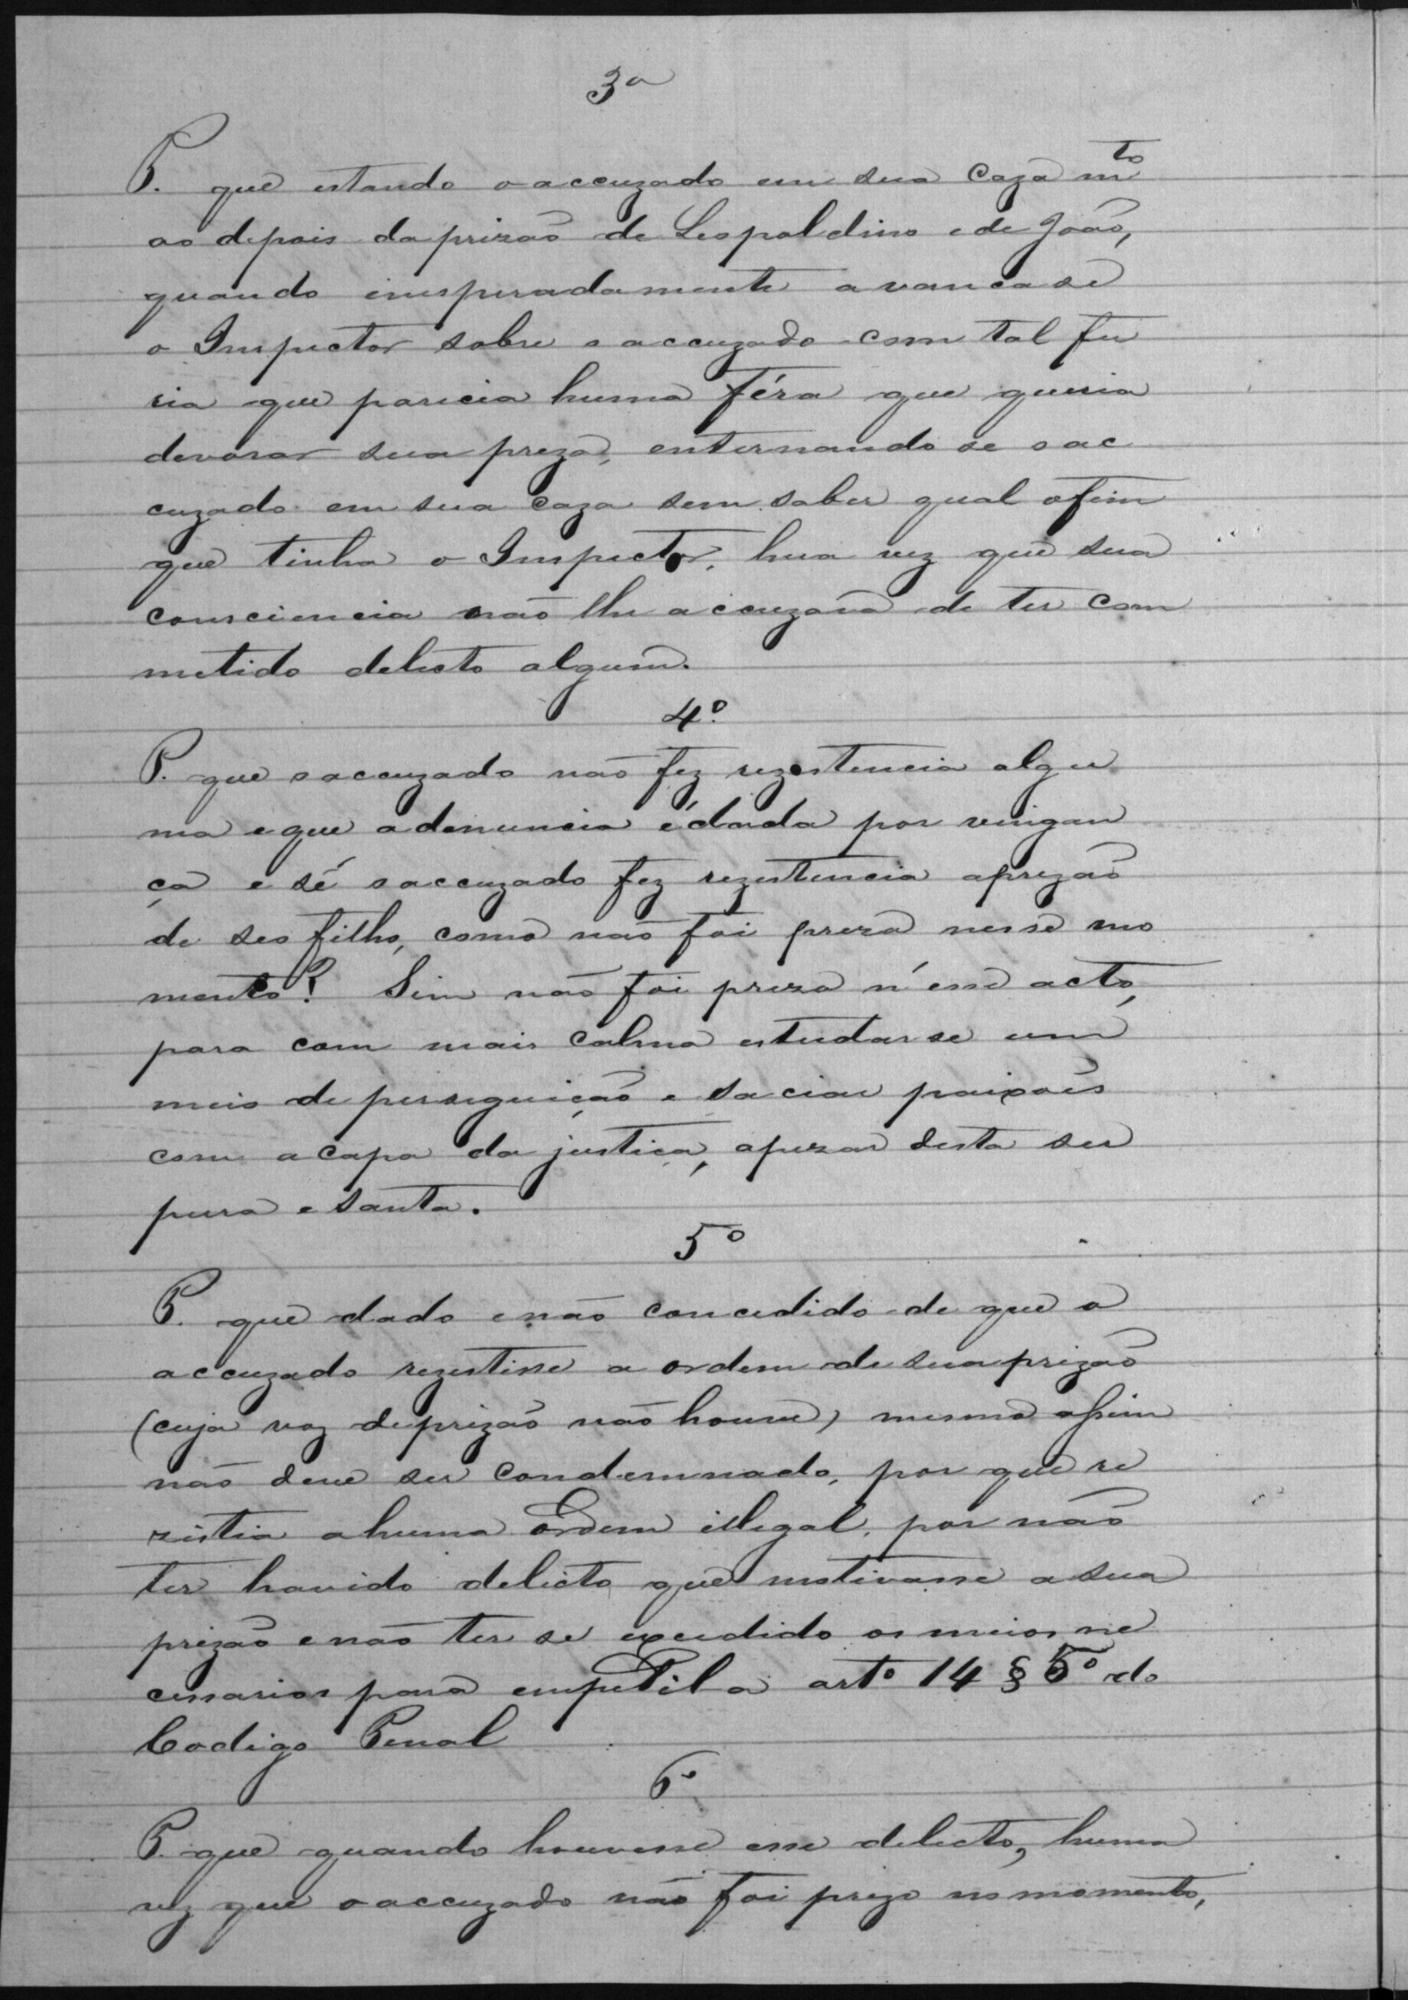 3ª
P. que estando o accuzado em sua caza mto
ao depois da prizão de Leopoldino e de João,
quando inesperadamente avanca se
o Inspector sobre o accuzado com tal fu
ria que parecia huma féra que queria
devorar sua preza, enternando se o ac
cuzado em sua caza sem saber qual o fim
que tinha o Inspector, hua vez que sua
consciencia não lhe accuzava de ter com
metido delicto algum.
4º
P. que o accuzado não fez rezestencia algu
ma e que a denuncia é dada por vingan
ça e sé o accuzado fez rezestencia a prizão
de seo filho, como não foi prezo nesse mo
mento? Sim não foi prezo n'esse acto,
para com mais calma estudar se um
meio de perseguição e saciar paixões
com a capa da justiça, apezar desta ser
pura e santa.
5º
P. que dado e não concedido de que o
accuzado rezestisse a ordem de sua prizão
(cuja voz de prizão não houve) mesmo assim
não deve ser condemnado, por que re
zistia a huma ordem illegal, por não
ter havido delicto que motivasse a sua
prizão e não ter se excedido os meios ne
cessarios para empedil a arto 14 § 5º do
Codigo Penal
6º
P. que quando houvesse esse delicto, huma
vez que o accuzado não foi prezo no momento,